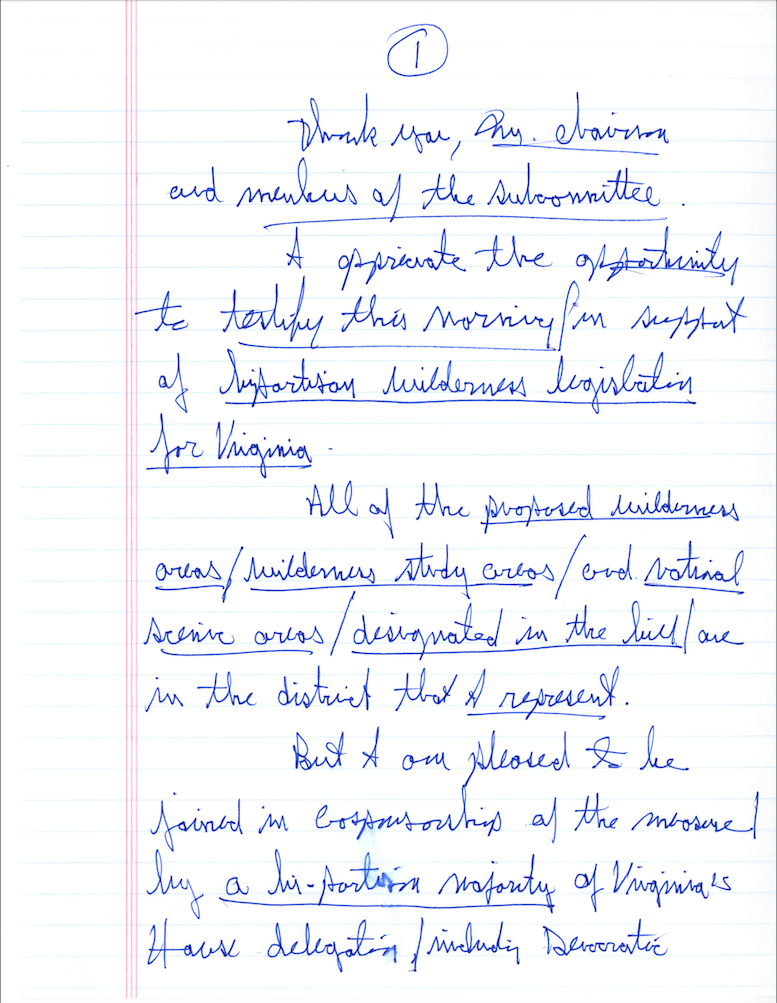 1
Thank you, Mr. Chairman
and members of the subcommittee.
I appreciate the opportunity
to testify this morning/in support
of bipartisan wilderness legislation
for Virginia.
All of the proposed wilderness
areas/wilderness study areas/and national
scenic areas/designated in the bill/are
in the district that I represent.
But I am pleased to be
joined in cosponsorship of the measure/
by a bi-partisan majority of Virginia's
House delegation,/including Democratic